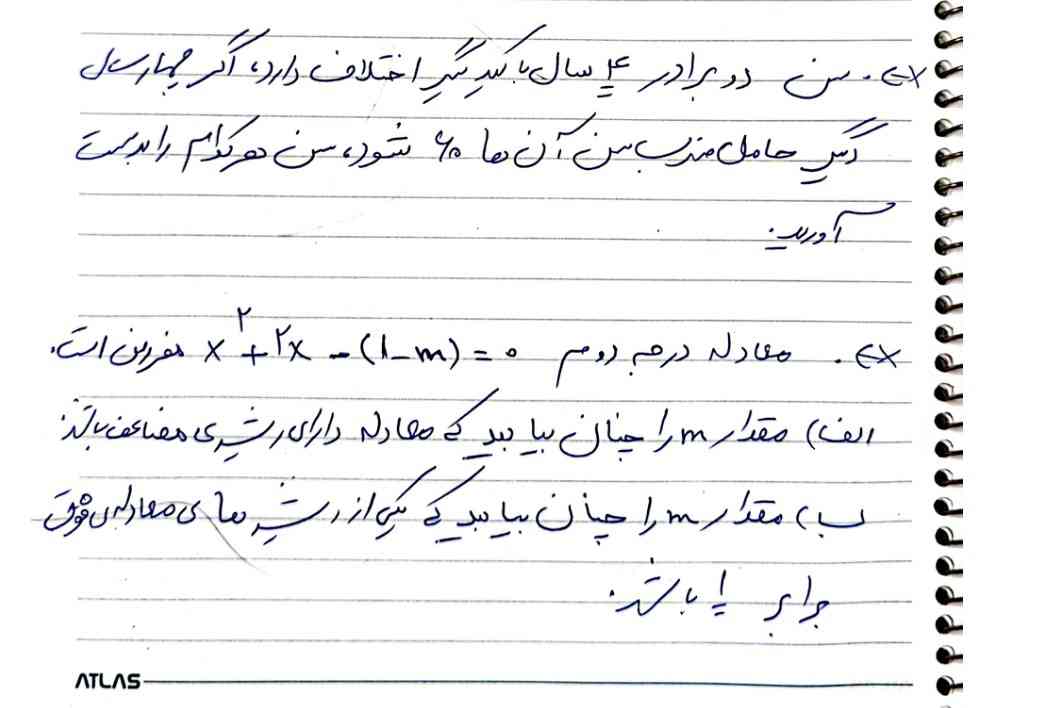 Ex. سن دو برادر ۴ سال با یکدیگر اختلاف دارد، اگر چهار سال
دیگر حاصل ضرب سن آن ها ۶۰ شود، سن هر کدام را بدست
آورید.
Ex. معادله درجه دوم x^۲ + ۲x - (۱-m) = ۰ مفروض است.
الف) مقدار m را چنان بیابید که معادله دارای ریشه ی مضاعف باشد.
ب) مقدار m را چنان بیابید که یکی از ریشه های معادله ی فوق
برابر ۱ باشد.
ATLAS